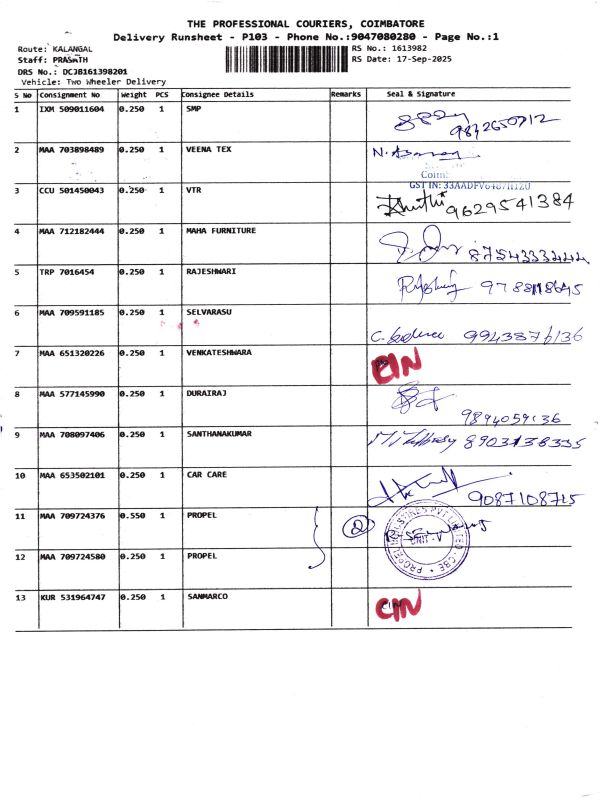 THE PROFESSIONAL COURIERS, COIMBATORE
Delivery Runsheet - P103 - Phone No.:9047080280 - Page No.:1
Route: KALANGAL RS No.: 1613982
Staff: PRASATH RS Date: 17-Sep-2025
DRS No.: DCJB161398201
Vehicle: Two Wheeler Delivery
S No Consignment No Weight PCS Consignee Details Remarks Seal & Signature
1 IXM 509011604 0.250 1 SMP
2 MAA 703898489 0.250 1 VEENA TEX
Coimb
GST IN: 33AADFV6487H1ZU
3 CCU 501450043 0.250 1 VTR 9629541384
4 MAA 712182444 0.250 1 MAHA FURNITURE 8754333444
5 TRP 7016454 0.250 1 RAJESHWARI
6 MAA 709591185 0.250 1 SELVARASU 9943876136
7 MAA 651320226 0.250 1 VENKATESHWARA CIN
8 MAA 577145990 0.250 1 DURAIRAJ 9894059136
9 MAA 708097406 0.250 1 SANTHANAKUMAR 8903138335
10 MAA 653502101 0.250 1 CAR CARE 9087108715
11 MAA 709724376 0.550 1 PROPEL 2
PROPEL INDUSTRIES PVT LIMITED - CBE
UNIT - V
12 MAA 709724580 0.250 1 PROPEL
13 KUR 531964747 0.250 1 SANMARCO CIN